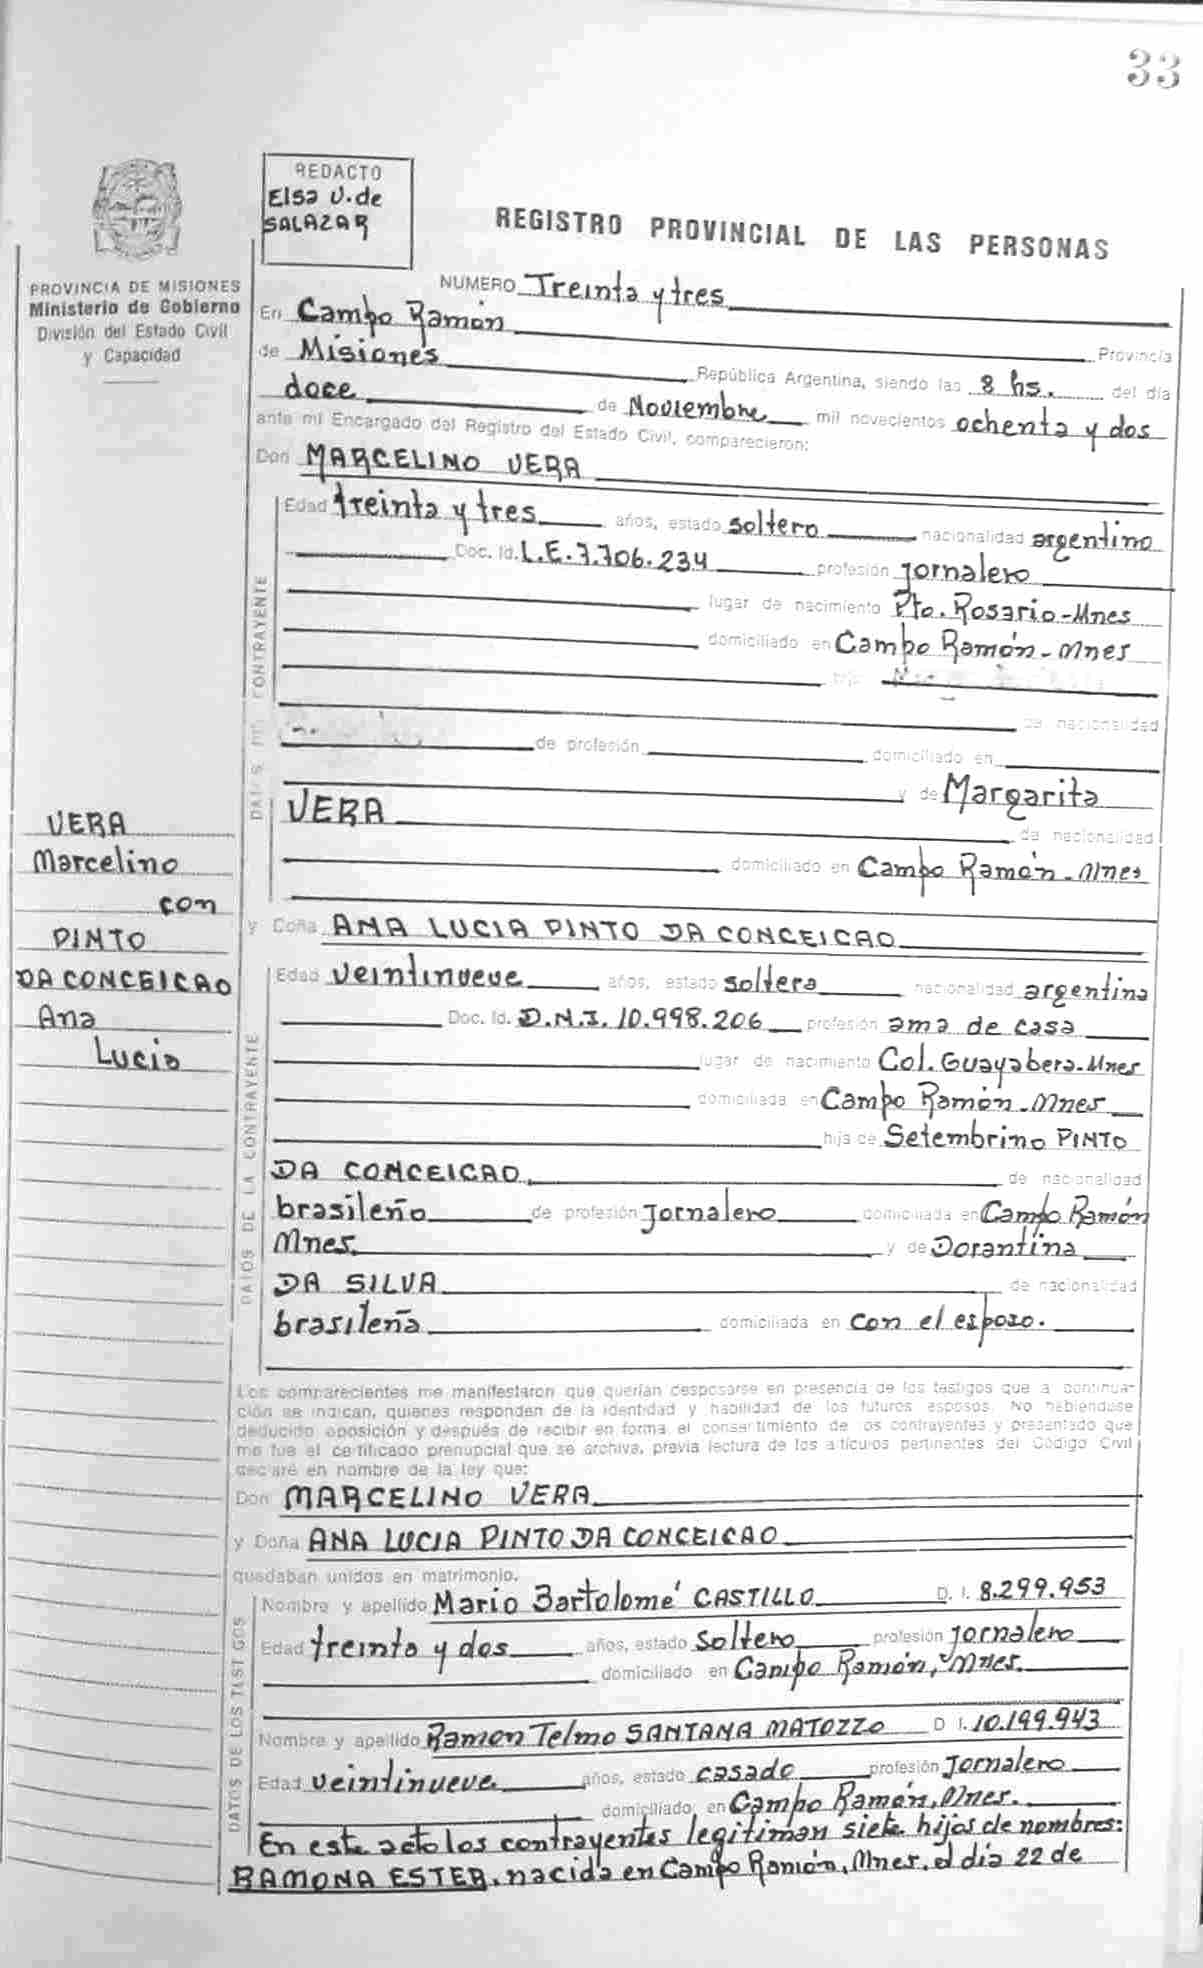 33
REDACTO
Elsa V. de
SALAZAR
REGISTRO PROVINCIAL DE LAS PERSONAS
PROVINCIA DE MISIONES
Ministerio de Gobierno
División del Estado Civil
y Capacidad
NUMERO Treinta y tres
En Campo Ramón Provincia
de Misiones República Argentina, siendo las 8 hs. del día
doce de Noviembre mil novecientos ochenta y dos
ante mi Encargado del Registro del Estado Civil, comparecieron:
Don MARCELINO VERA
DATOS DEL CONTRAYENTE
Edad treinta y tres años, estado soltero nacionalidad argentino
Doc. Id. L.E. 7.706.234 profesión jornalero
lugar de nacimiento Pto. Rosario-Mnes
domiciliado en Campo Ramón-Mnes
hijo
de nacionalidad
de profesión domiciliado en
y de Margarita
VERA de nacionalidad
domiciliado en Campo Ramón-Mnes
VERA
Marcelino
con
PINTO
DA CONCEICAO
Ana
Lucia
y Doña ANA LUCIA PINTO DA CONCEICAO
DATOS DE LA CONTRAYENTE
Edad veintinueve años, estado soltera nacionalidad argentina
Doc. Id. D.N.I. 10.998.206 profesión ama de casa
lugar de nacimiento Col. Guayabera-Mnes
domiciliada en Campo Ramón-Mnes
hija de Setembrino PINTO
DA CONCEICAO de nacionalidad
brasileño de profesión Jornalero domiciliada en Campo Ramón
Mnes. y de Dorantina
DA SILVA de nacionalidad
brasileña domiciliada en con el esposo.
Los comparecientes me manifestaron que querían desposarse en presencia de los testigos que a continua-
ción se indican, quienes responden de la identidad y habilidad de los futuros esposos. No habiéndose
deducido oposición y después de recibir en forma el consentimiento de los contrayentes y presentado que
me fue el certificado prenupcial que se archiva, previa lectura de los artículos pertinentes del Código Civil
declaré en nombre de la ley que:
Don MARCELINO VERA
y Doña ANA LUCIA PINTO DA CONCEICAO
quedaban unidos en matrimonio.
DATOS DE LOS TESTIGOS
Nombre y apellido Mario Bartolomé CASTILLO D. I. 8.299.953
Edad treinta y dos años, estado Soltero profesión Jornalero
domiciliado en Campo Ramón, Mnes.
Nombre y apellido Ramon Telmo SANTANA MATOZZO D I. 10.199.943
Edad veintinueve años, estado casado profesión Jornalero
domiciliado en Campo Ramón, Mnes.
En este acto los contrayentes legitiman siete hijos de nombres:
RAMONA ESTER, nacida en Campo Ramón, Mnes, el día 22 de